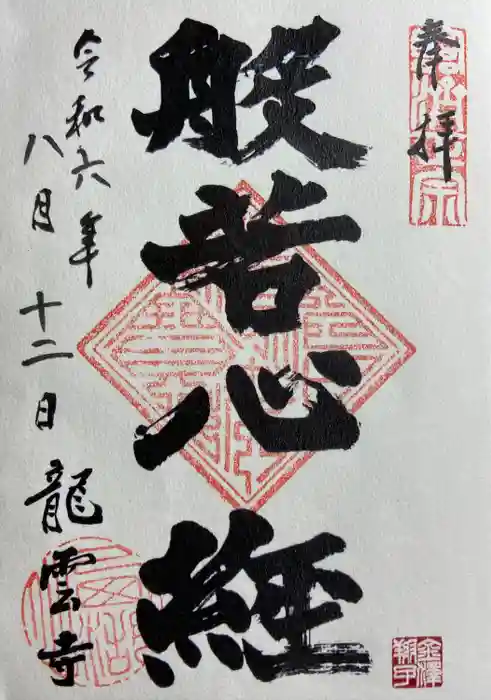 奉拝
般若心経
令和六年
八月十二日
龍雲寺
金澤
翔子